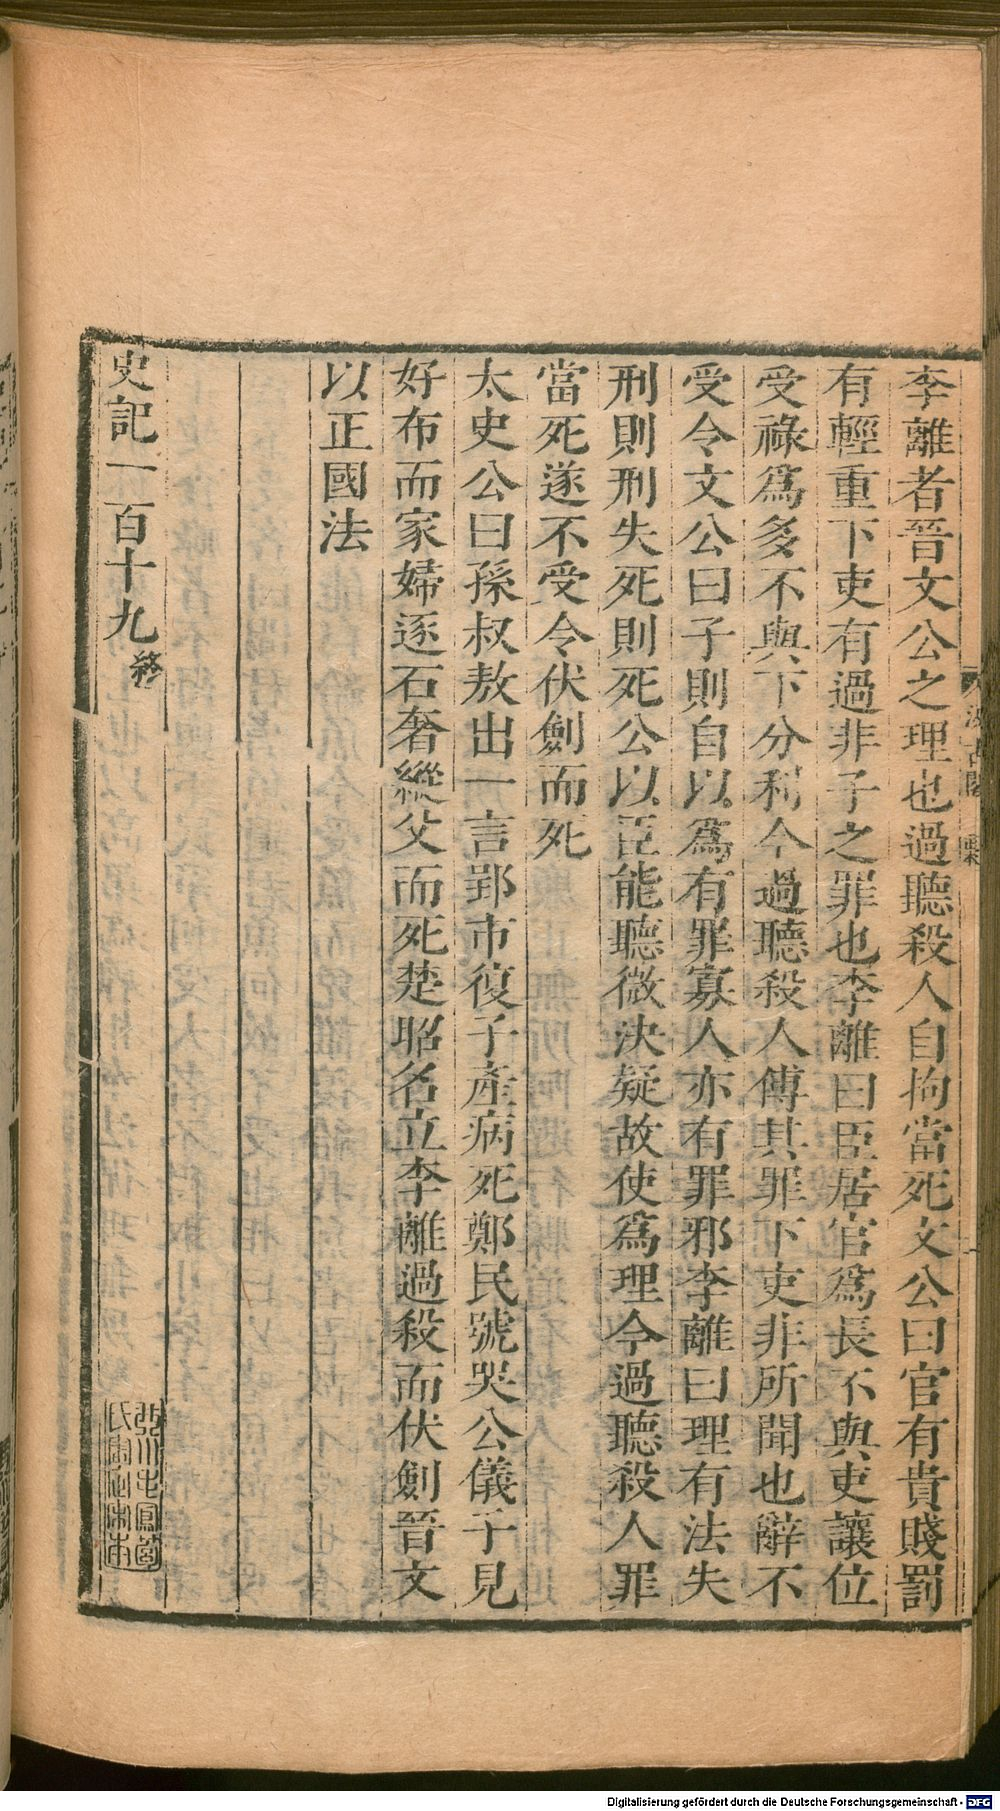 李離者晉文公之理也過聽殺人自拘當死文公曰官有貴賤罰
有輕重下吏有過非子之罪也李離曰臣居官爲長不與吏讓位
受祿爲多不與下分利今過聽殺人傅其罪下吏非所聞也辭不
受令文公曰子則自以爲有罪寡人亦有罪邪李離曰理有法失
刑則刑失死則死公以臣能聽微決疑故使爲理今過聽殺人罪
當死遂不受令伏劍而死
太史公曰孫叔敖出一言郢市復子產病死鄭民號哭公儀子見
好布而家婦逐石奢縱父而死楚昭名立李離過殺而伏劍晉文
以正國法
史記一百十九 終
Digitalisierung gefördert durch die Deutsche Forschungsgemeinschaft - DFG